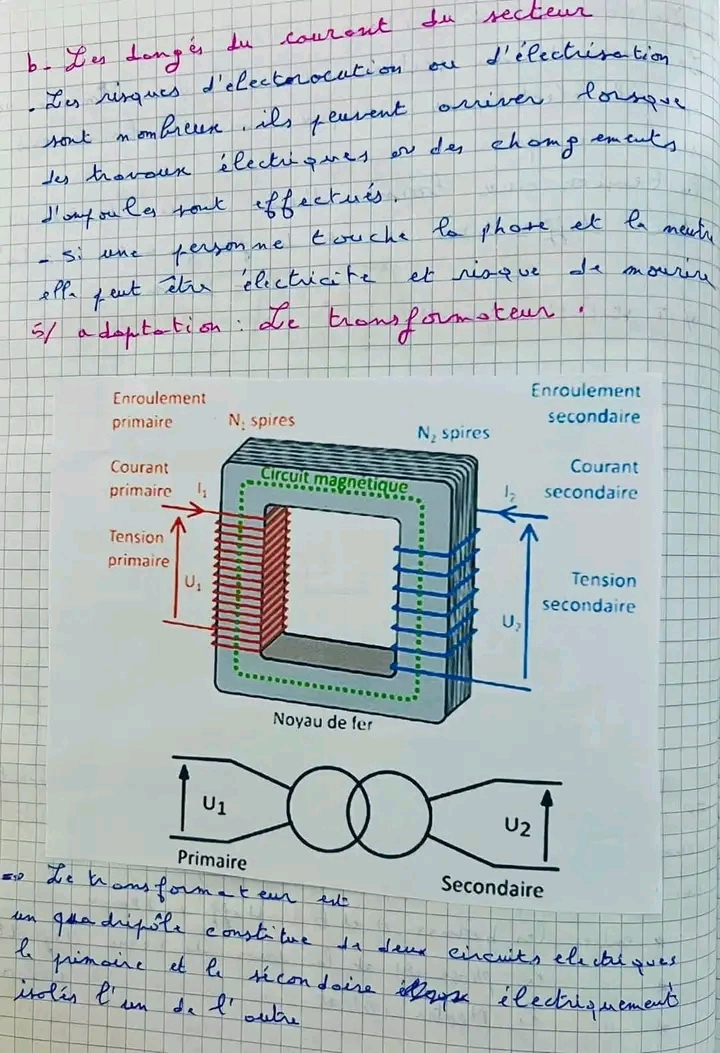 b- Les dangés du courant du secteur
. Les risques d'electorocution ou d'électrisation
sont nombreux, ils peuvent arriver lorsque
des travaux électriques ou des changements
d'ampoules sont effectués.
- si une personne touche la phase et la neutre
elle peut être électricite et risque de mourire
5/ adaptation : Le transformateur.
Enroulement primaire
N₁ spires
N₂ spires
Enroulement secondaire
Courant primaire
I₁
Circuit magnétique
I₂
Courant secondaire
Tension primaire
U₁
Tension secondaire
U₂
Noyau de fer
U1
U2
Primaire
Secondaire
=> Le transformateur est
un quadripôle constitue de deux circuits electriques
le primaire et le sécondaire électriquement
isolés l'un de l'autre